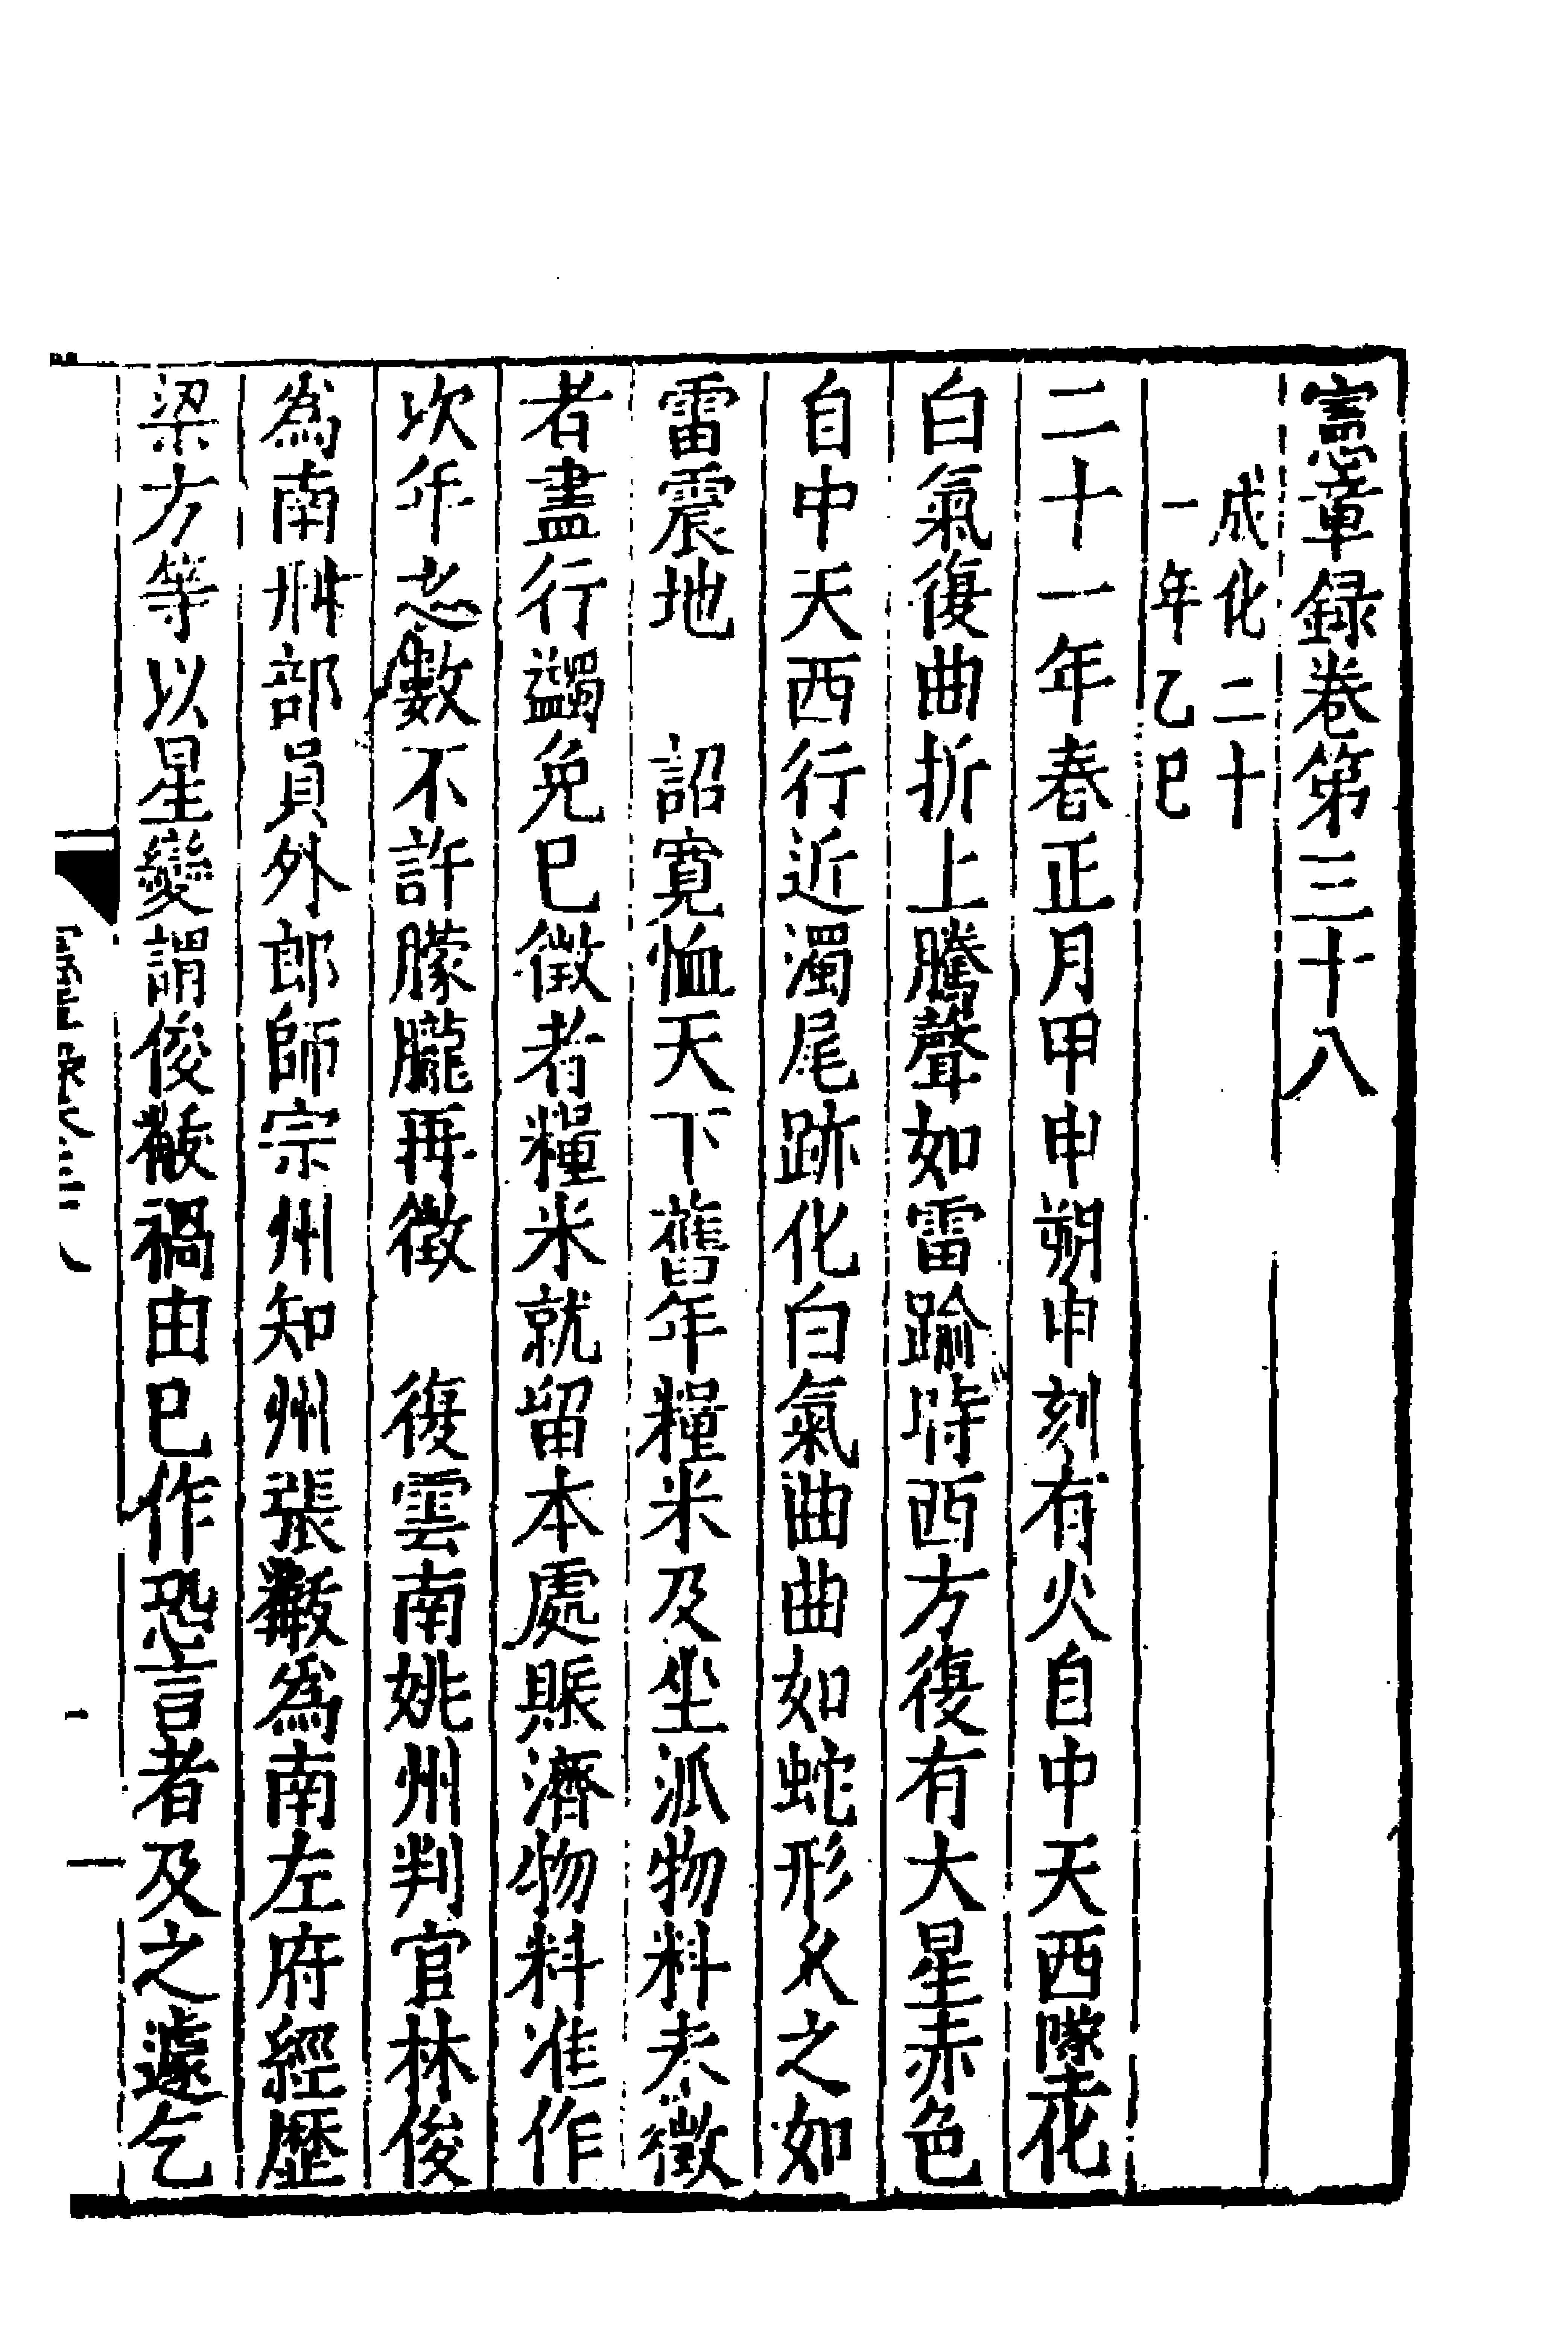 憲章録卷第三十八
成化二十
一年乙巳
二十一年春正月甲申朔申刻有火自中天西墜化
白氣復曲折上騰聲如雷踰時西方復有大星赤色
自中天西行近濁尾跡化白氣曲曲如蛇形久之如
雷震地　詔寛恤天下舊年糧米及坐派物料未徵
者盡行蠲免巳徵者糧米就留本處賑濟物料准作
次年之數不許朦朧再徵　復雲南姚州判官林俊
為南刑部員外郎師宗州知州張黻為南左府經歷
梁方等以星變謂俊黻禍由巳作恐言者及之遽乞